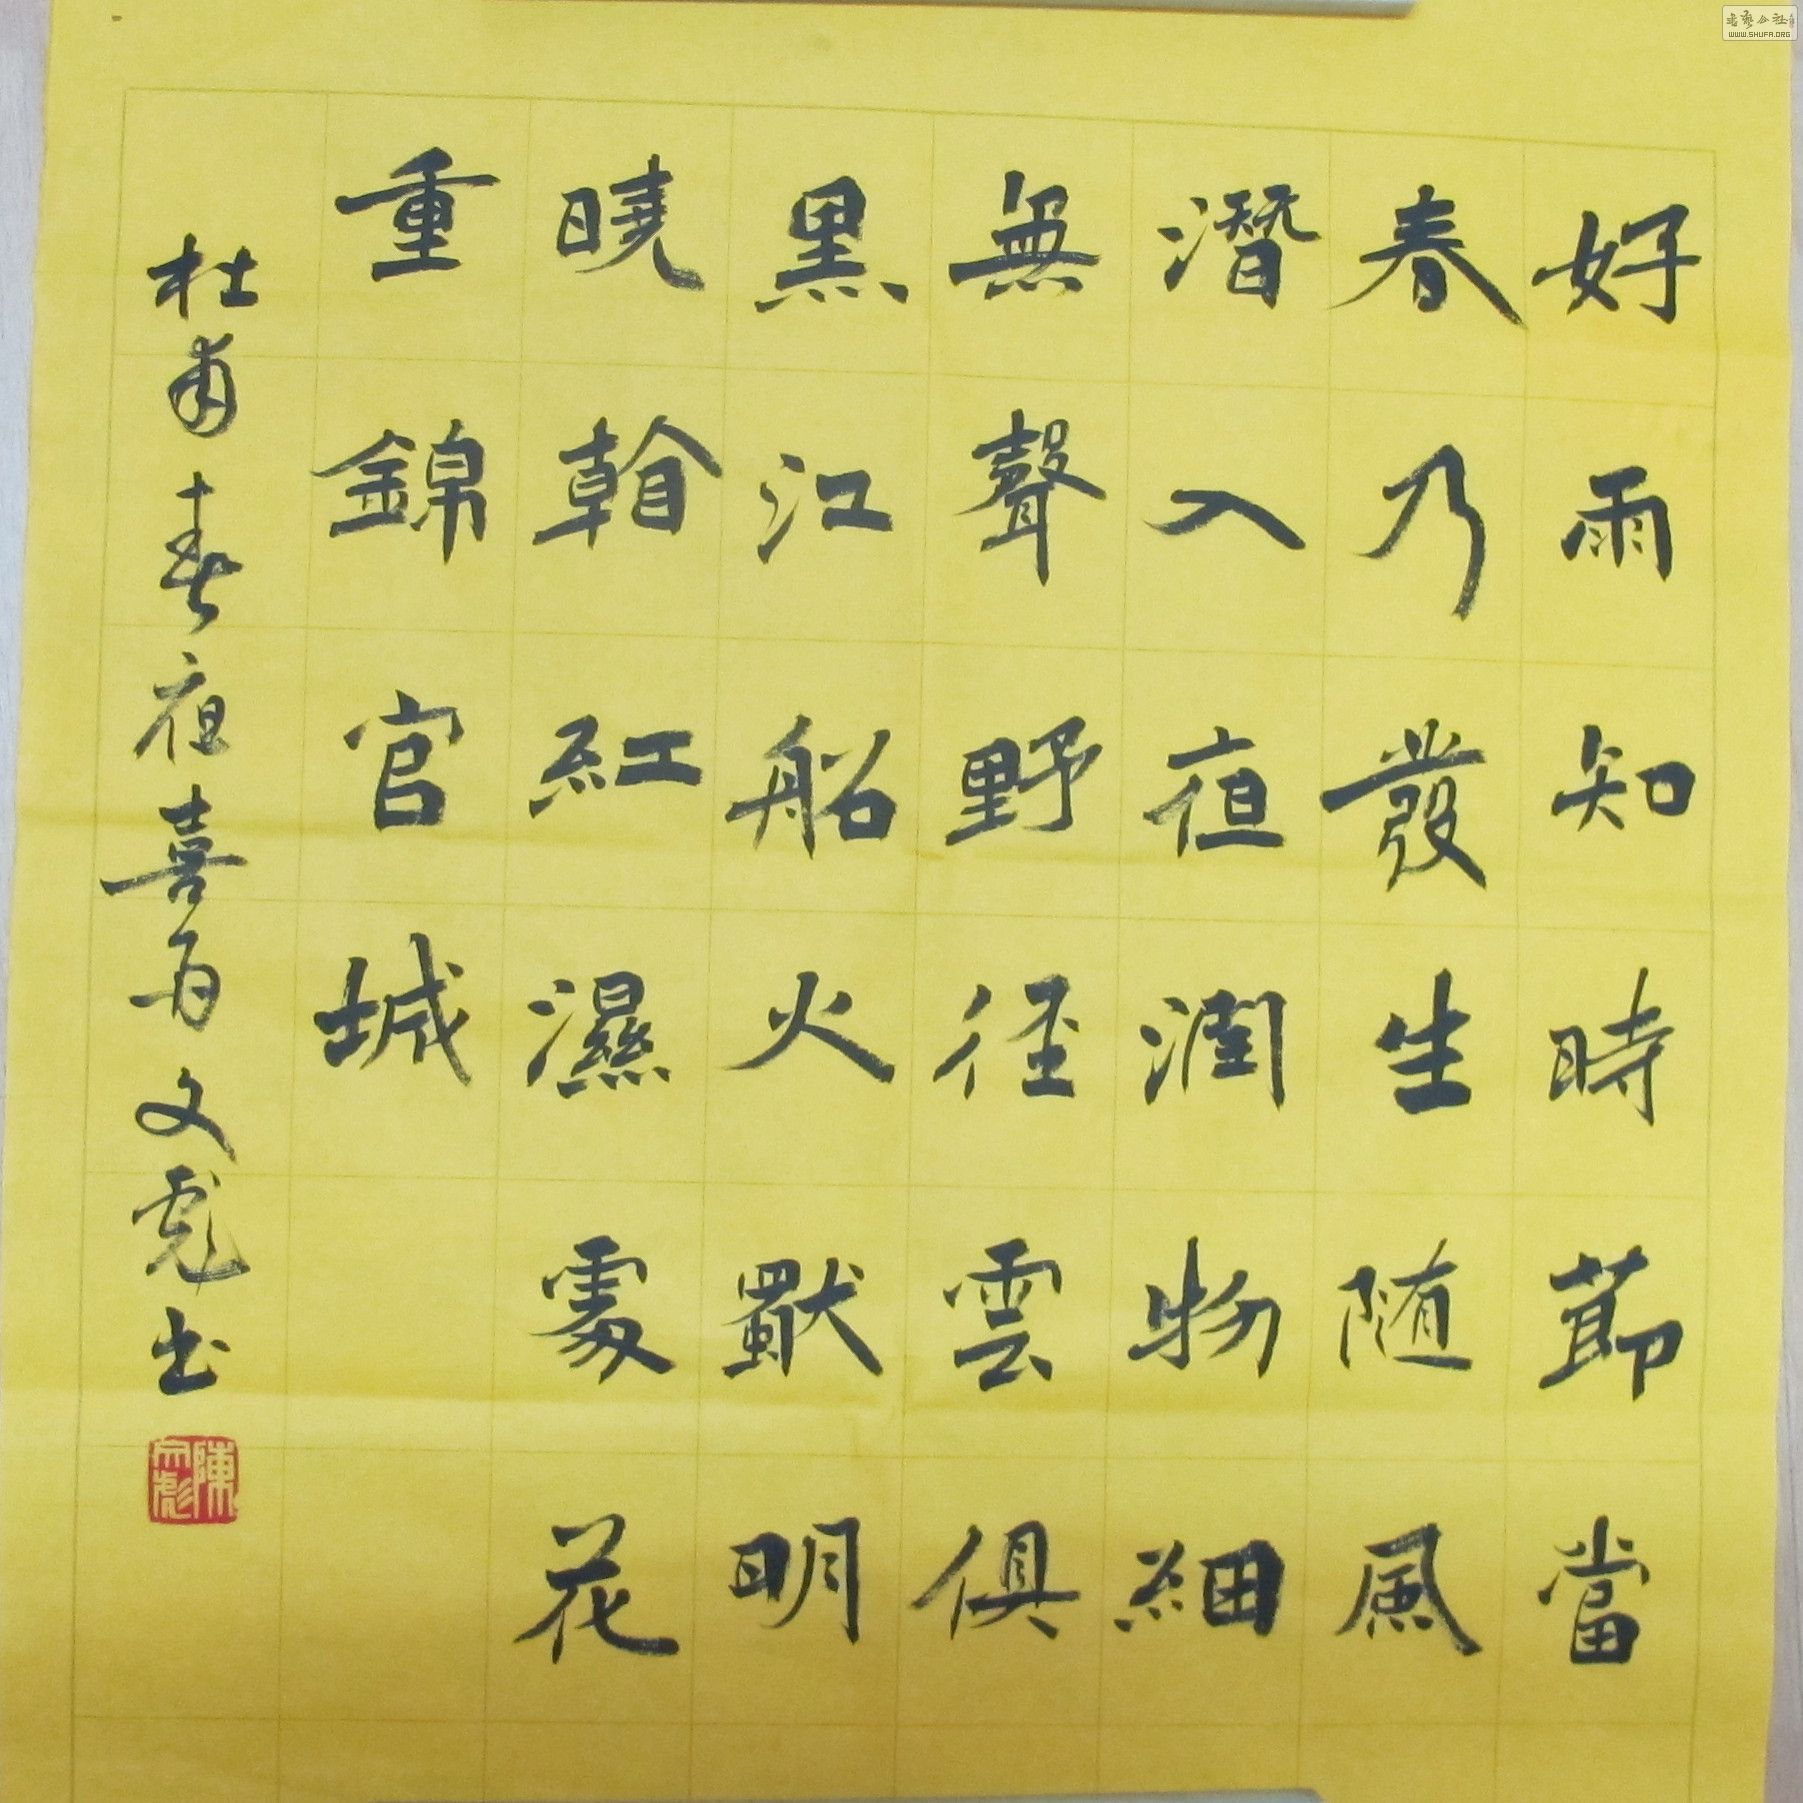 好雨知時節當
春乃發生随風
潛入夜潤物細
無聲野径雲俱
黑江船火獨明
曉看紅濕處花
重錦官城
杜甫春夜喜雨文彪书
陳文彪
书艺公社
WWW.SHUFA.ORG